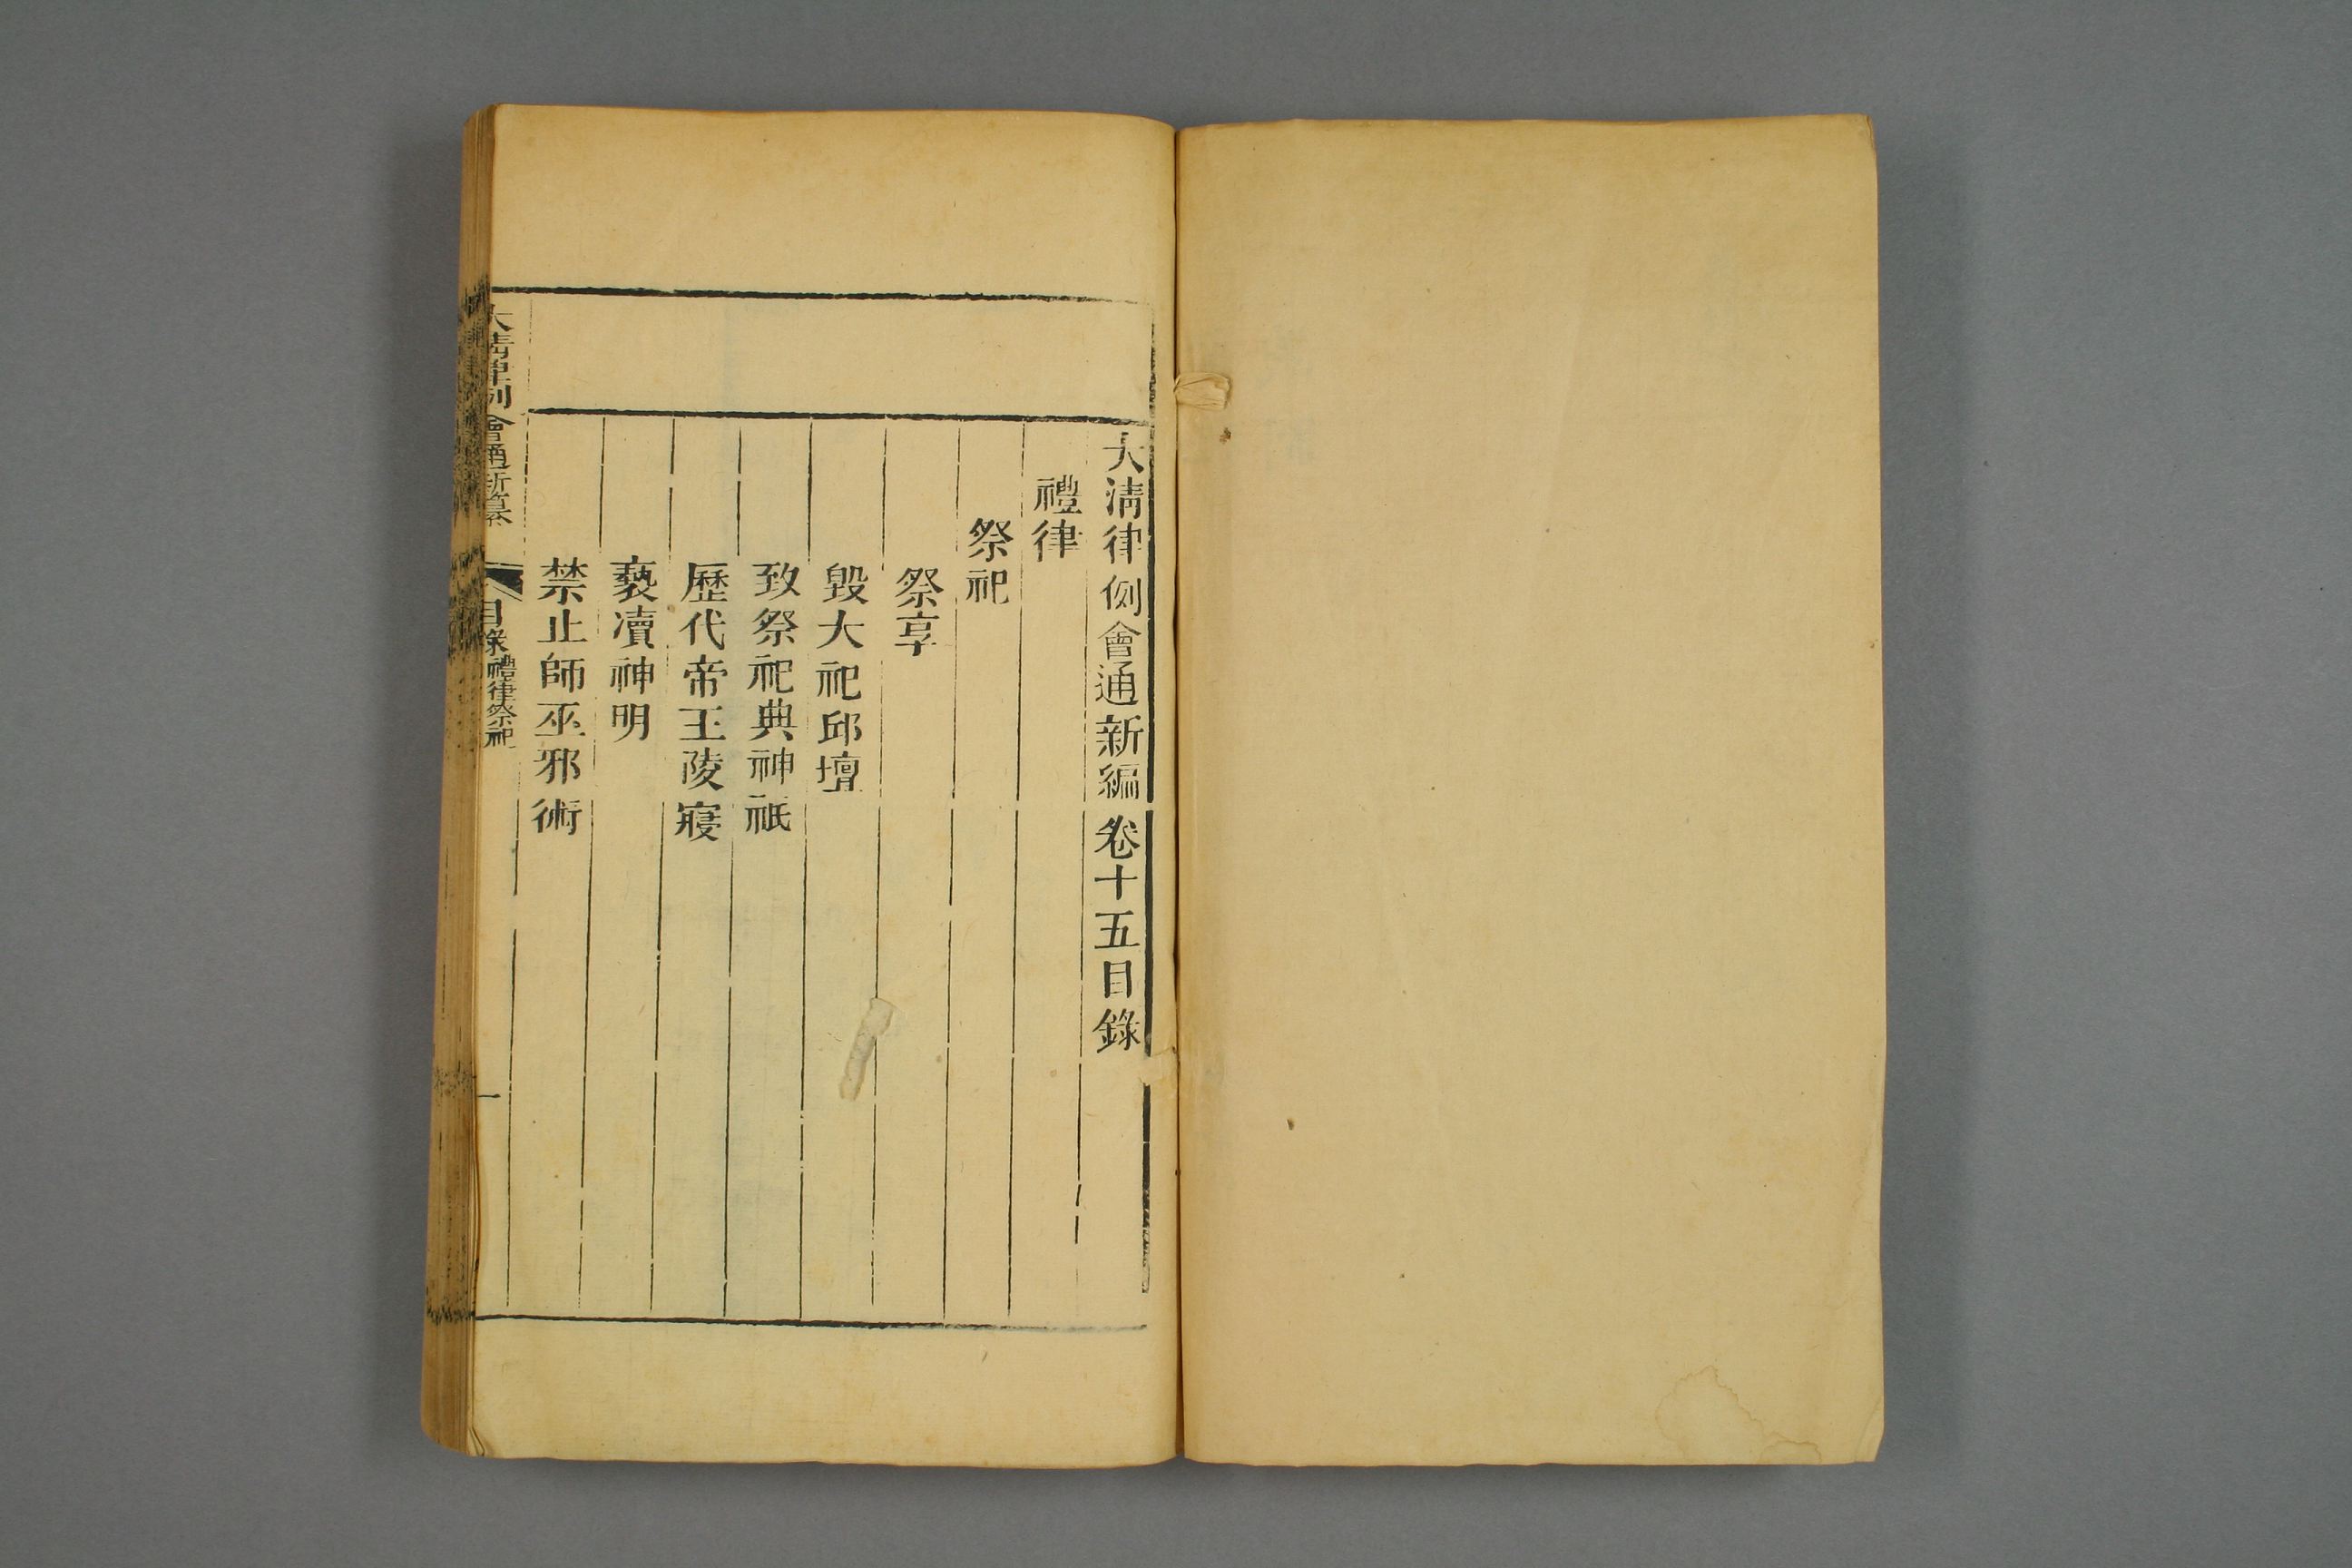 大清律例會通新編卷十五目錄
禮律
祭祀
祭享
毀大祀邱壇
致祭祀典神祇
歷代帝王陵寢
褻凟神明
禁止師巫邪術
大清律例會通新纂 目錄 禮律祭祀 一